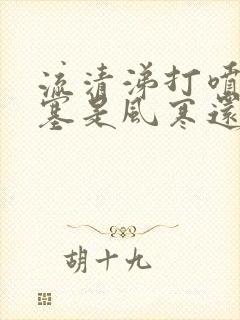 流清涕打噴
塞是風寒還
胡十九